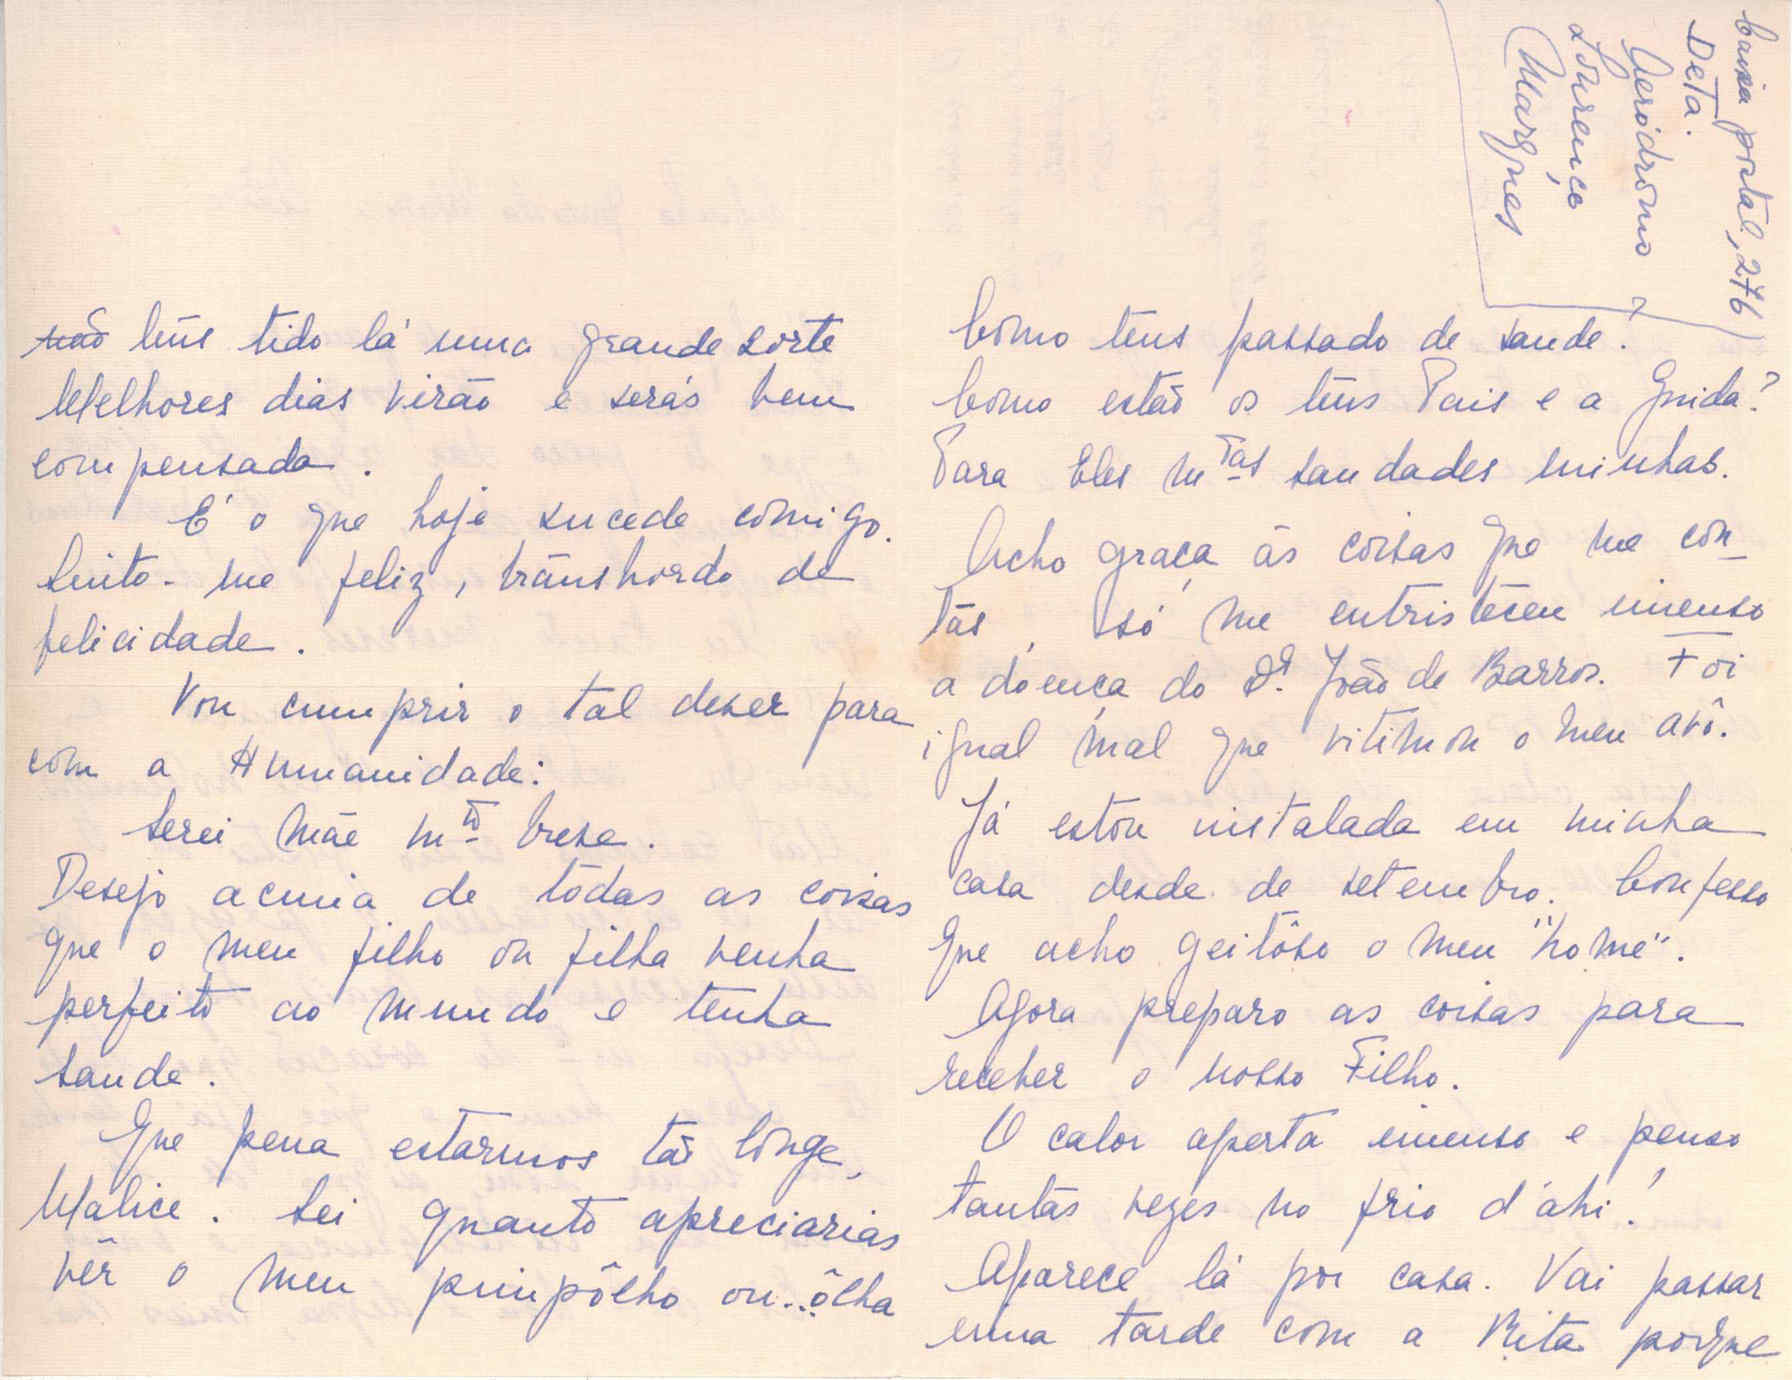 não têns tido lá uma grande sorte
Melhores dias virão e serás bem
compensada.
É o que hoje sucede comigo.
Sinto-me feliz, trânsbordo de
felicidade.
Vou cumprir o tal dever para
com a Humanidade:
Serei Mãe mto breve.
Desejo acima de tôdas as coisas
que o meu filho ou filha venha
perfeito ao mundo e tenha
saude.
Que pena estarmos tão lônge,
Malice. Sei quanto apreciarias
vêr o meu pimpôlho ou...ôlha
Como têns passado de saude?
Como estão os têus Pais e a Guida?
Para Eles mtas saudades minhas.
Acho graça às coisas que me con-
tas, só me entristeceu imenso
a doença do Dr. João de Barros. Foi
igual mal que vitimou o meu avô.
Já estou instalada em minha
casa desde de setembro. Confesso
que acho geitôso o meu "home".
Agora preparo as coisas para
receber o nosso Filho.
O calor aperta imenso e penso
tantas vezes no frio d'ahi!
Aparece lá por casa. Vai passar
uma tarde com a Rita porque
Caixa postal, 276
DETA.
Aeródromo
Lourenço
Marques